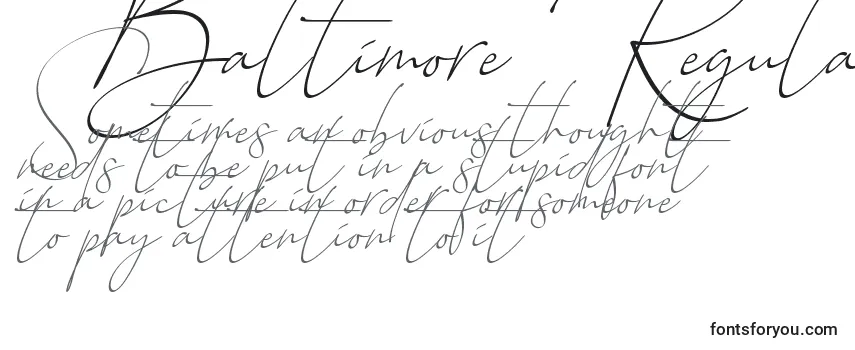 Baltimore Regula
Sometimes an obvious thought
needs to be put in a stupid font
in a picture in order for someone
to pay attention to it
fontsforyou.com